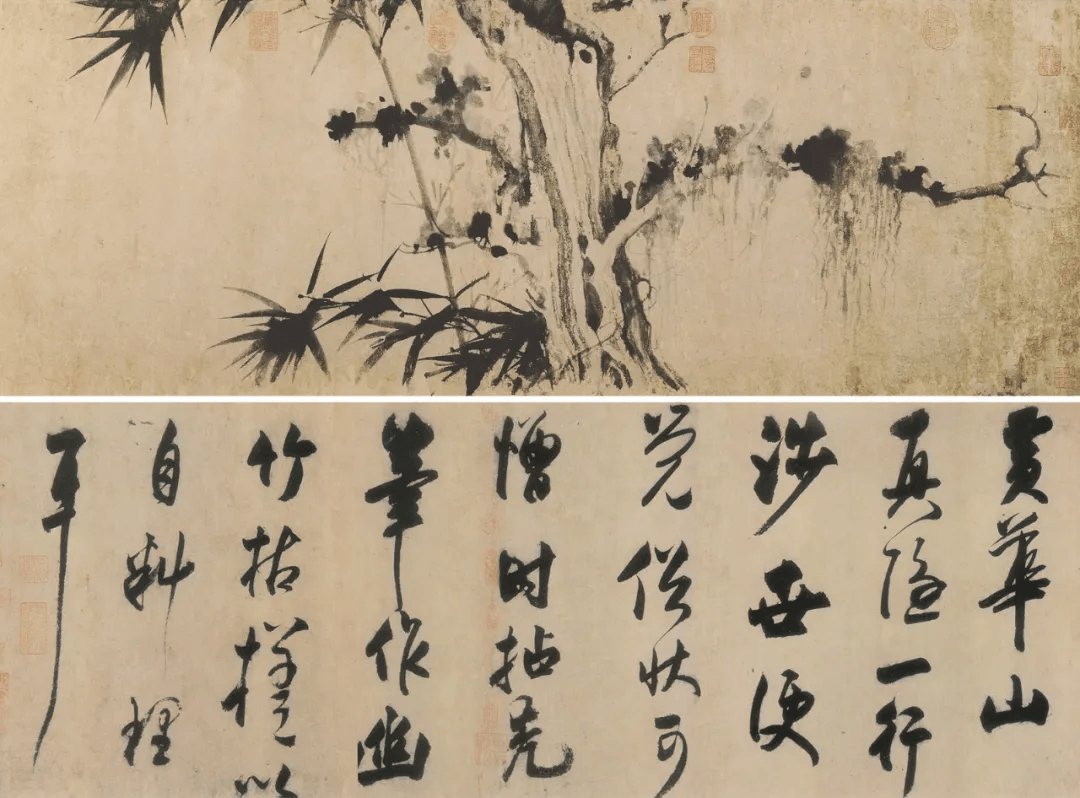 黄華山
真隐一行
涉世便
觉俗状可
憎时拈秃
筆作幽
竹枯槎以
自料理
耳